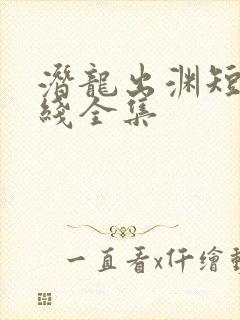 潛龍出渊短
线全集
一直看x仟繪動